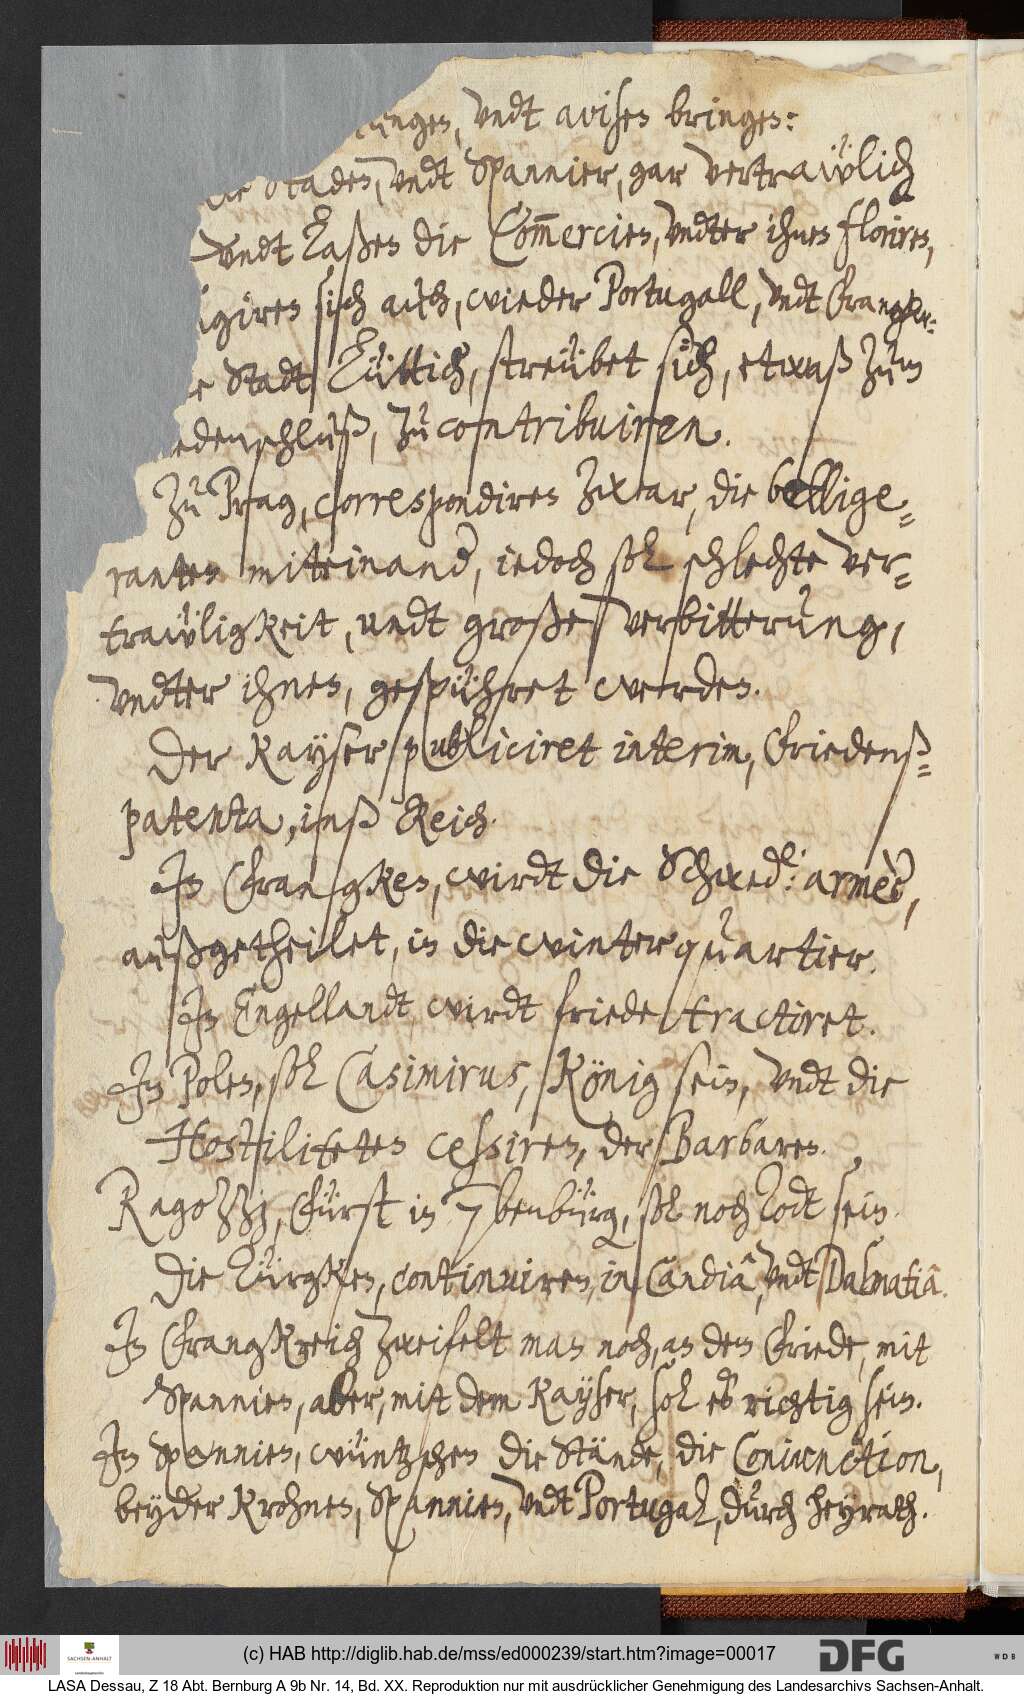 undt avisen bringen:
Staden, undt Spannier, gar vertrawlich
undt laßen die Com̅ercien, undter ihnen floriren,
ligiren sich auch, wieder Portugall, undt Frangkr:
Stadt Lüttich, streübet sich, etwaß zum
edenschluß, zu contribuiren.
Zu Prag, correspondiren zwar, die bellige¬
ranten miteinand, iedoch sol schlechte ver¬
trawligkeit, undt große verbitterung,
undter ihnen, gespühret werden.
Der Kayser publiciret interim, Friedenß¬
patenta, inß Reich.
In Frangken, wirdt die Schwed: armèe,
außgetheilet, in die winterquartier.
In Engellandt wirdt friede tractiret.
In Polen, sol Casimirus, König sein, undt die
Hostiliteten cessiren, der Barbaren.
Ragozzj, Fürst in 7benbürg, sol noch Todt sein.
Die Türgken, continuiren, in Candiâ, undt Dalmatiâ.
In Frangkreich zweifelt man noch, an den Friede, mit
Spannien, aber, mit dem Kayser, sol es richtig sein.
In Spannien, wüntzschen die Stände, die Coniunction,
beyder Krohnen, Spannien, undt Portugal, durch heyrath.
SACHSEN-ANHALT
(c) HAB http://diglib.hab.de/mss/ed000239/start.htm?image=00017
DFG
WDB
LASA Dessau, Z 18 Abt. Bernburg A 9b Nr. 14, Bd. XX. Reproduktion nur mit ausdrücklicher Genehmigung des Landesarchivs Sachsen-Anhalt.